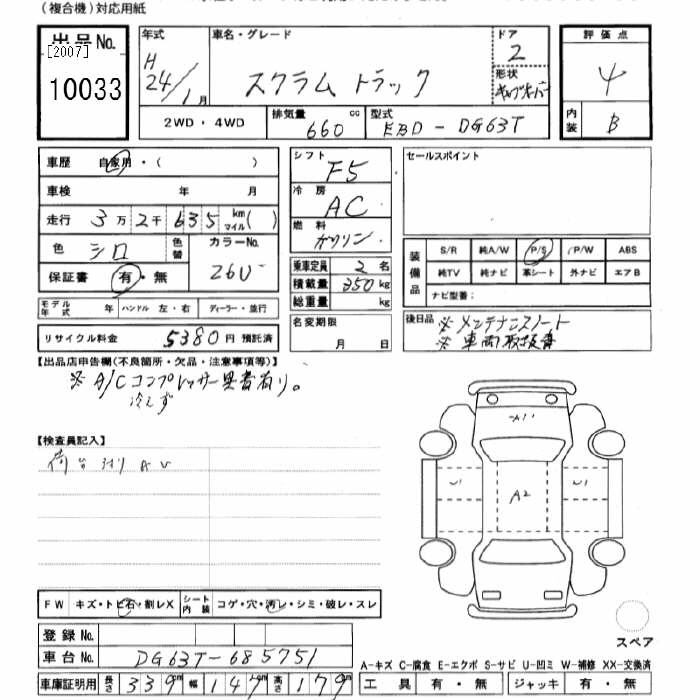 (複合機)対応用紙
出品No.
[2007]
10033
年式
H 24/1月
車名・グレード
スクラム トラック
ドア
2
形状
評価点
4
内装
B
2WD・4WD
排気量
660 cc
型式
EBD-DG63T
車歴 自家用・( )
車検 年 月
走行 3万2千635 km マイル( )
色 シロ 色替
カラーNo.
26U
保証書 有・無
モデル年式 年 ハンドル 左・右 ディーラー・並行
リサイクル料金 5380円 預託済
シフト
F5
冷房
AC
燃料
ガソリン
乗車定員 2名
積載量 350kg
総重量 kg
名変期限
月 日
セールスポイント
装備品
S/R 純A/W P/S P/W ABS
純TV 純ナビ 革シート 外ナビ エアB
ナビ型番:
後日品 ※メンテナンスノート
※車両取扱書
【出品店申告欄(不良箇所・欠品・注意事項等)】
※A/Cコンプレッサー異音有り。
冷えず
【検査員記入】
荷台 AU
A1
U1
A2
U1
スペア
FW キズ・トビ石・割レX
シート内装 コゲ・穴・汚レ・シミ・破レ・スレ
登録No.
車台No. DG63T-685751
車庫証明用 長さ 339m 幅 147m 高さ 179m
A-キズ C-腐食 E-エクボ S-サビ U-凹ミ W-補修 XX-交換済
工具 有・無 ジャッキ 有・無